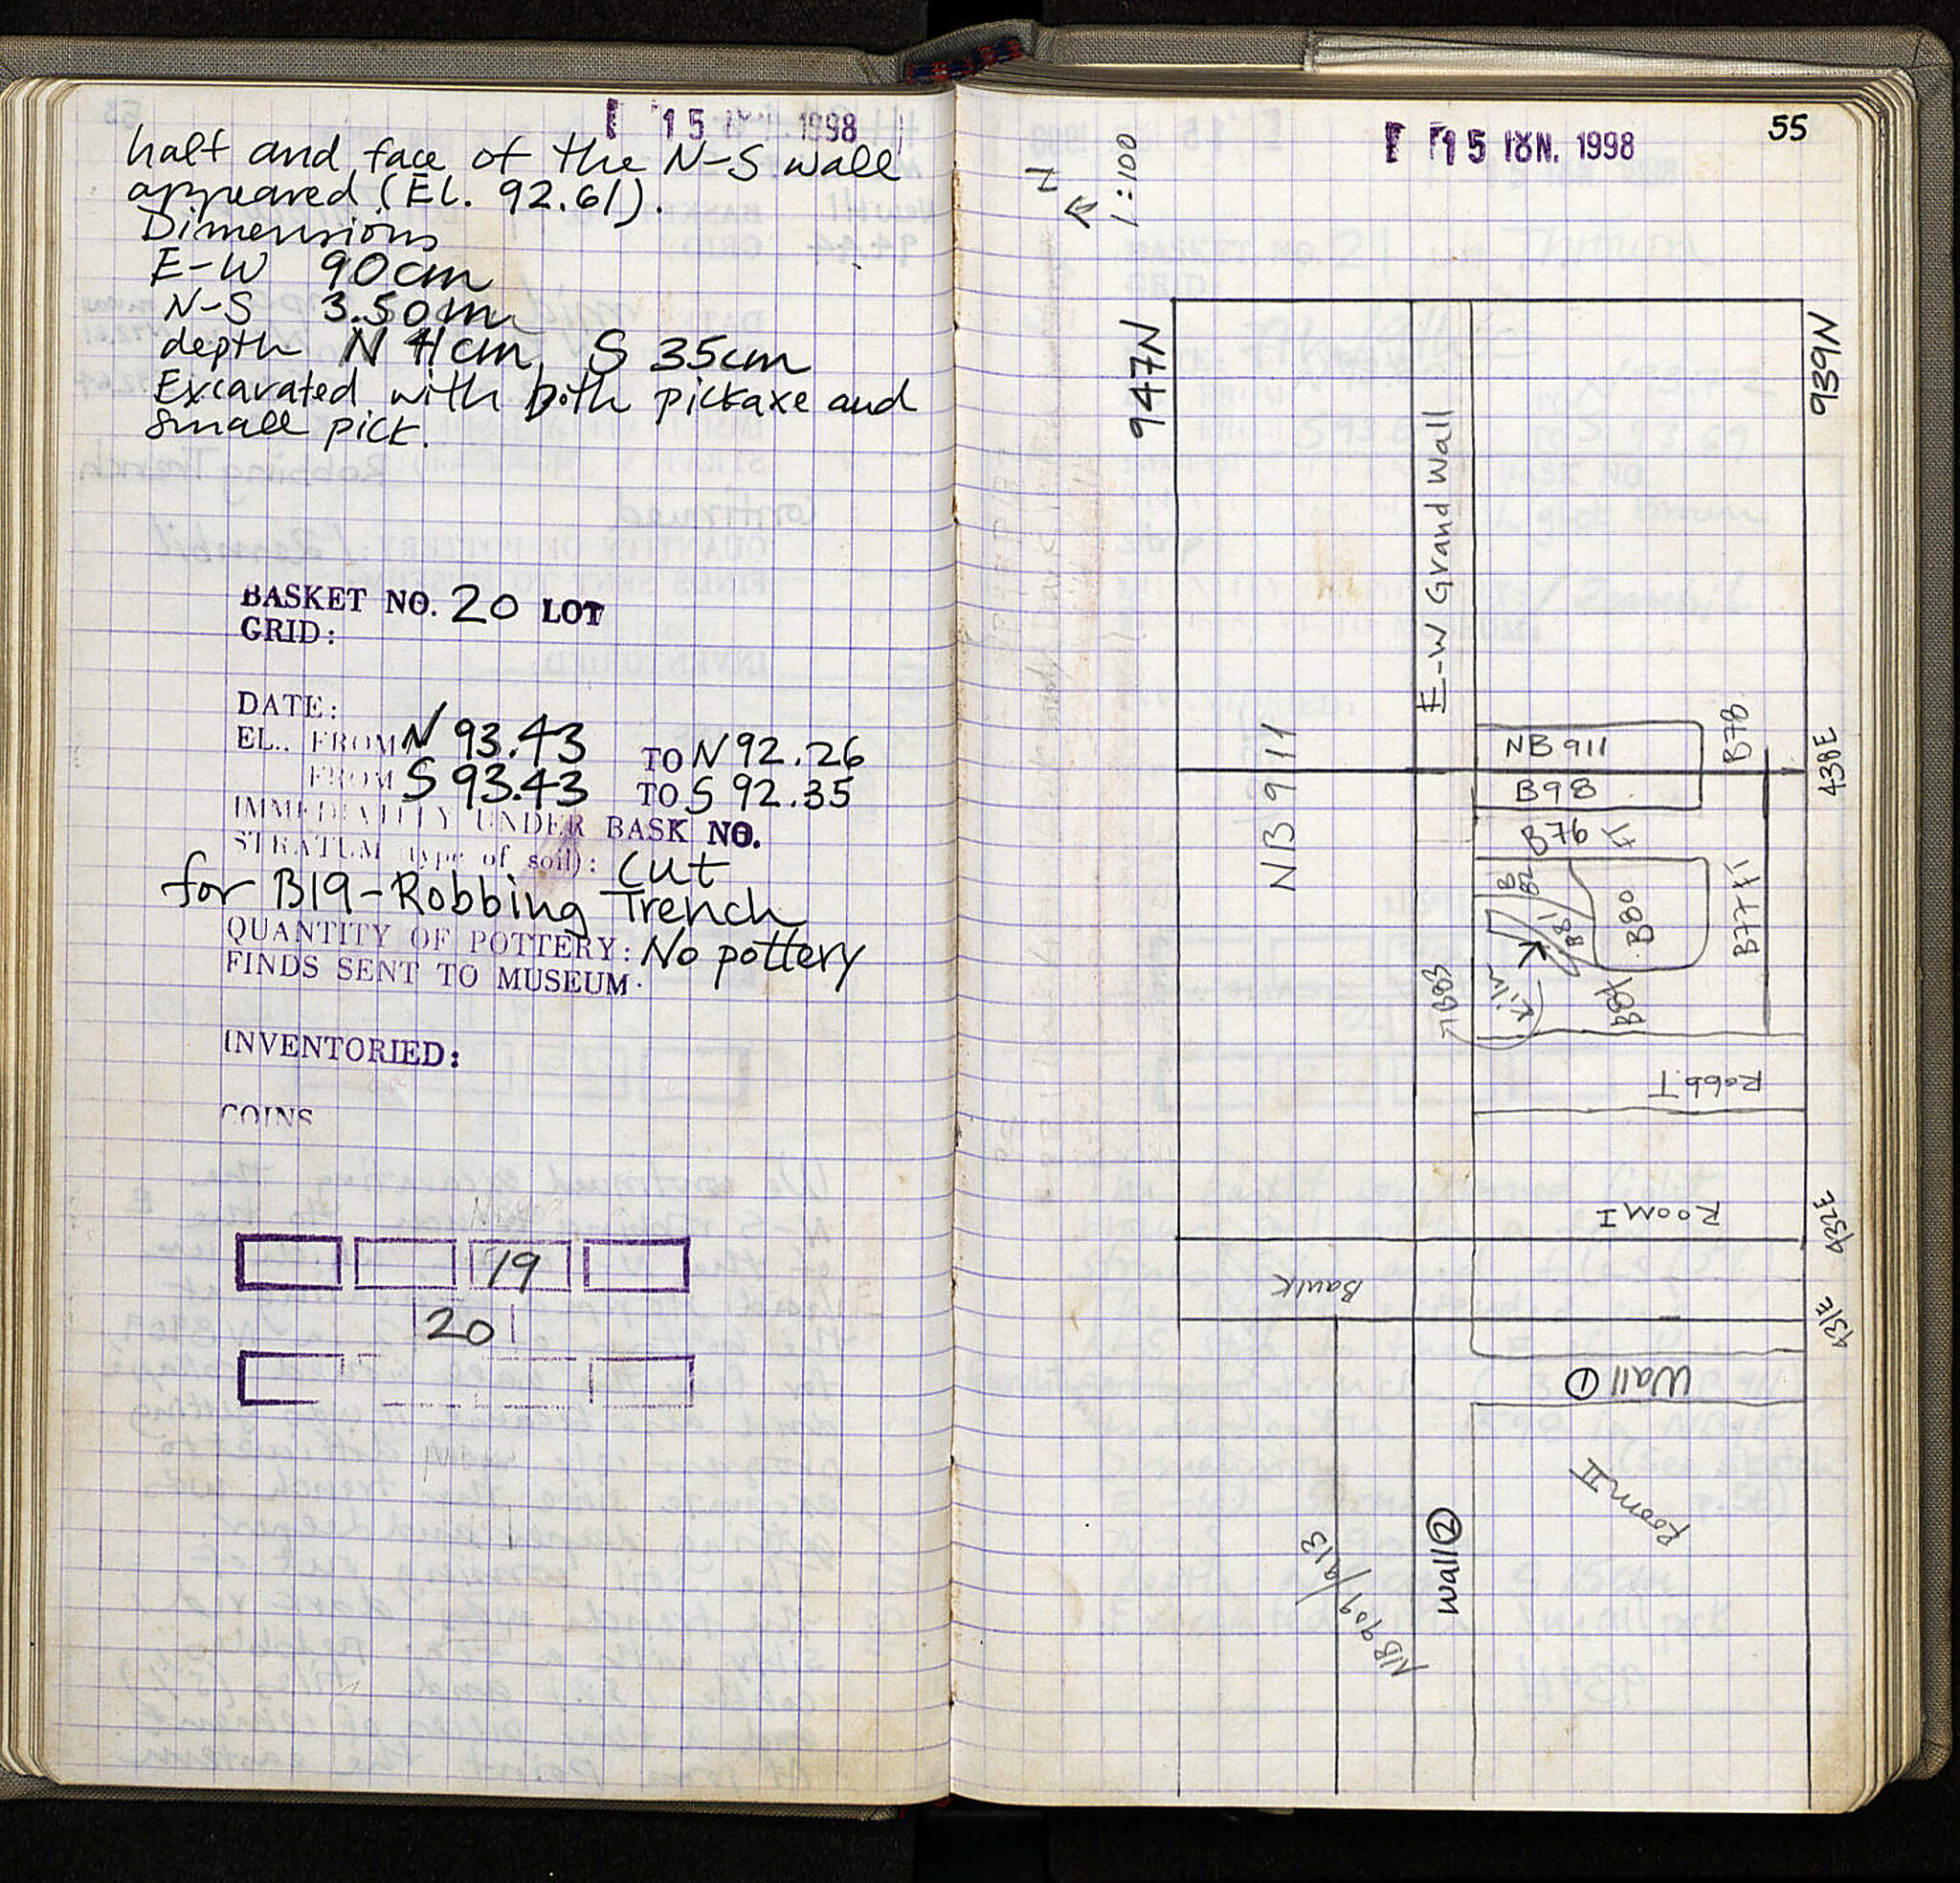 15 1998
half and face of the N-S wall
appeared (El. 92.61).
Dimensions
E-W 90cm
N-S 3.50m
depth N 4cm S 35cm
Excavated with both pickaxe and
small pick.
BASKET NO. 20 LOT
GRID:
DATE:
EL.. FROM N 93.43 TO N 92.26
FROM S 93.43 TO S 92.35
IMMEDIATLY UNDER BASK NO.
STRATUM (type of soil): Cut
for B19-Robbing Trench
QUANTITY OF POTTERY: No pottery
FINDS SENT TO MUSEUM.
INVENTORIED:
COINS
19
20
15 ΙΟΥΝ. 1998
55
N
1:100
947N
939N
E-W Grand Wall
NB 911
NB 911
B78
438E
B98
B76
B82
B81
B80
B77
B83
Kiln
B84
Robb.T
Room I
432E
Baulk
431E
Wall ①
Room II
Wall ②
NB 909/913